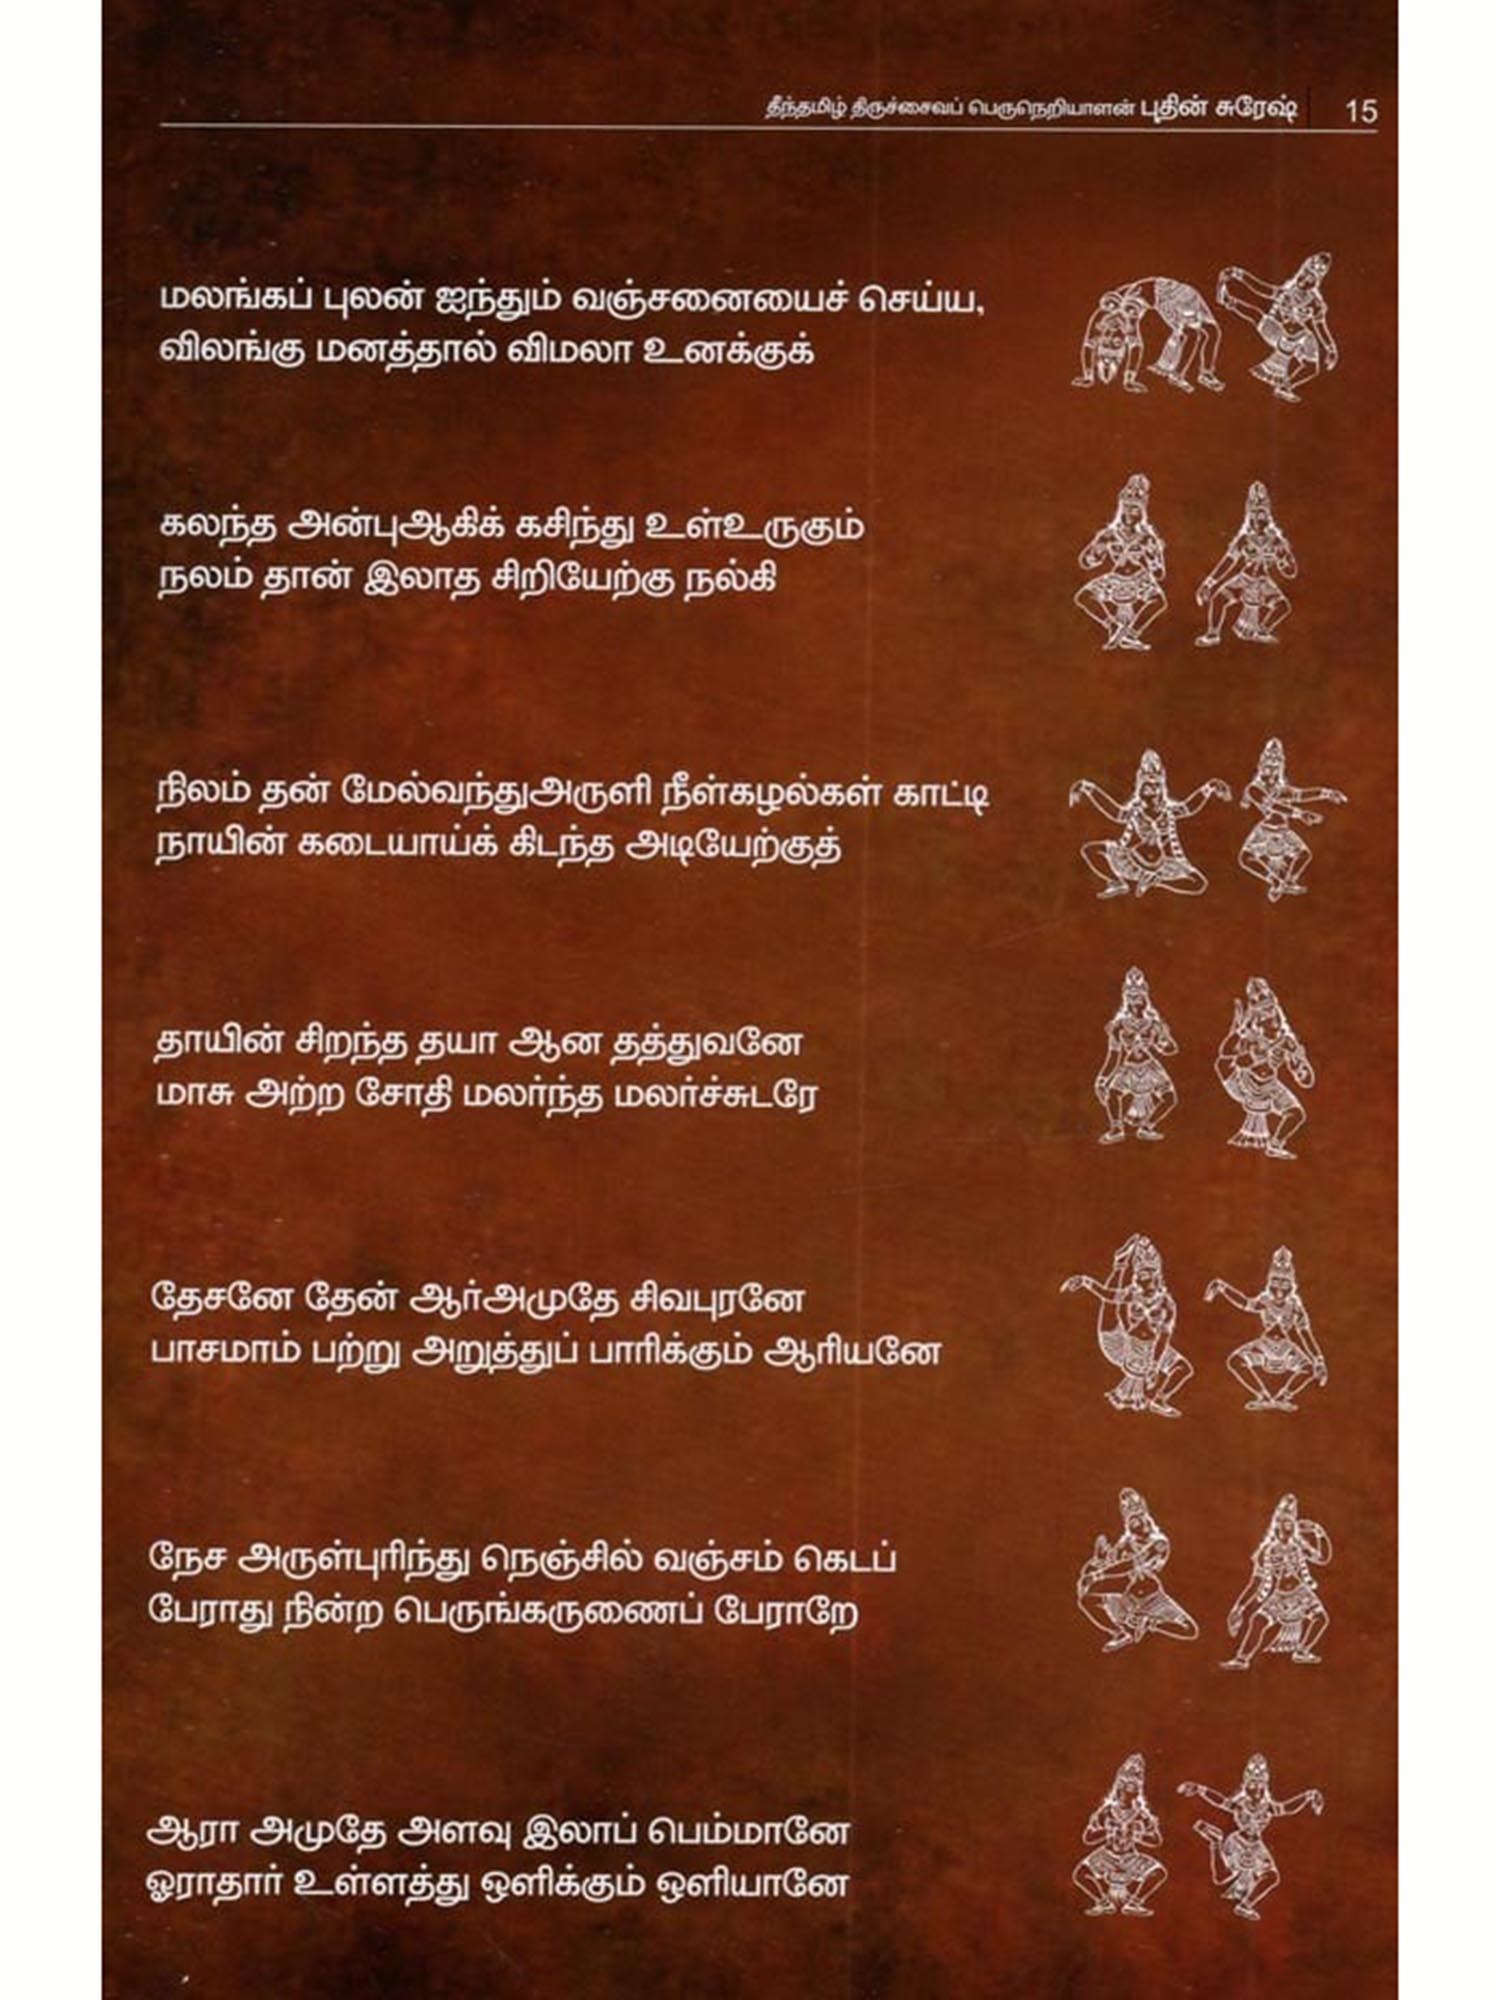 தீந்தமிழ் திருச்சைவப் பெருநெறியாளன் புதின் சுரேஷ் 15
மலங்கப் புலன் ஐந்தும் வஞ்சனையைச் செய்ய,
விலங்கு மனத்தால் விமலா உனக்குக்
கலந்த அன்புஆகிக் கசிந்து உள்உருகும்
நலம் தான் இலாத சிறியேற்கு நல்கி
நிலம் தன் மேல்வந்துஅருளி நீள்கழல்கள் காட்டி
நாயின் கடையாய்க் கிடந்த அடியேற்குத்
தாயின் சிறந்த தயா ஆன தத்துவனே
மாசு அற்ற சோதி மலர்ந்த மலர்ச்சுடரே
தேசனே தேன் ஆர்அமுதே சிவபுரனே
பாசமாம் பற்று அறுத்துப் பாரிக்கும் ஆரியனே
நேச அருள்புரிந்து நெஞ்சில் வஞ்சம் கெடப்
பேராது நின்ற பெருங்கருணைப் பேராறே
ஆரா அமுதே அளவு இலாப் பெம்மானே
ஓராதார் உள்ளத்து ஒளிக்கும் ஒளியானே